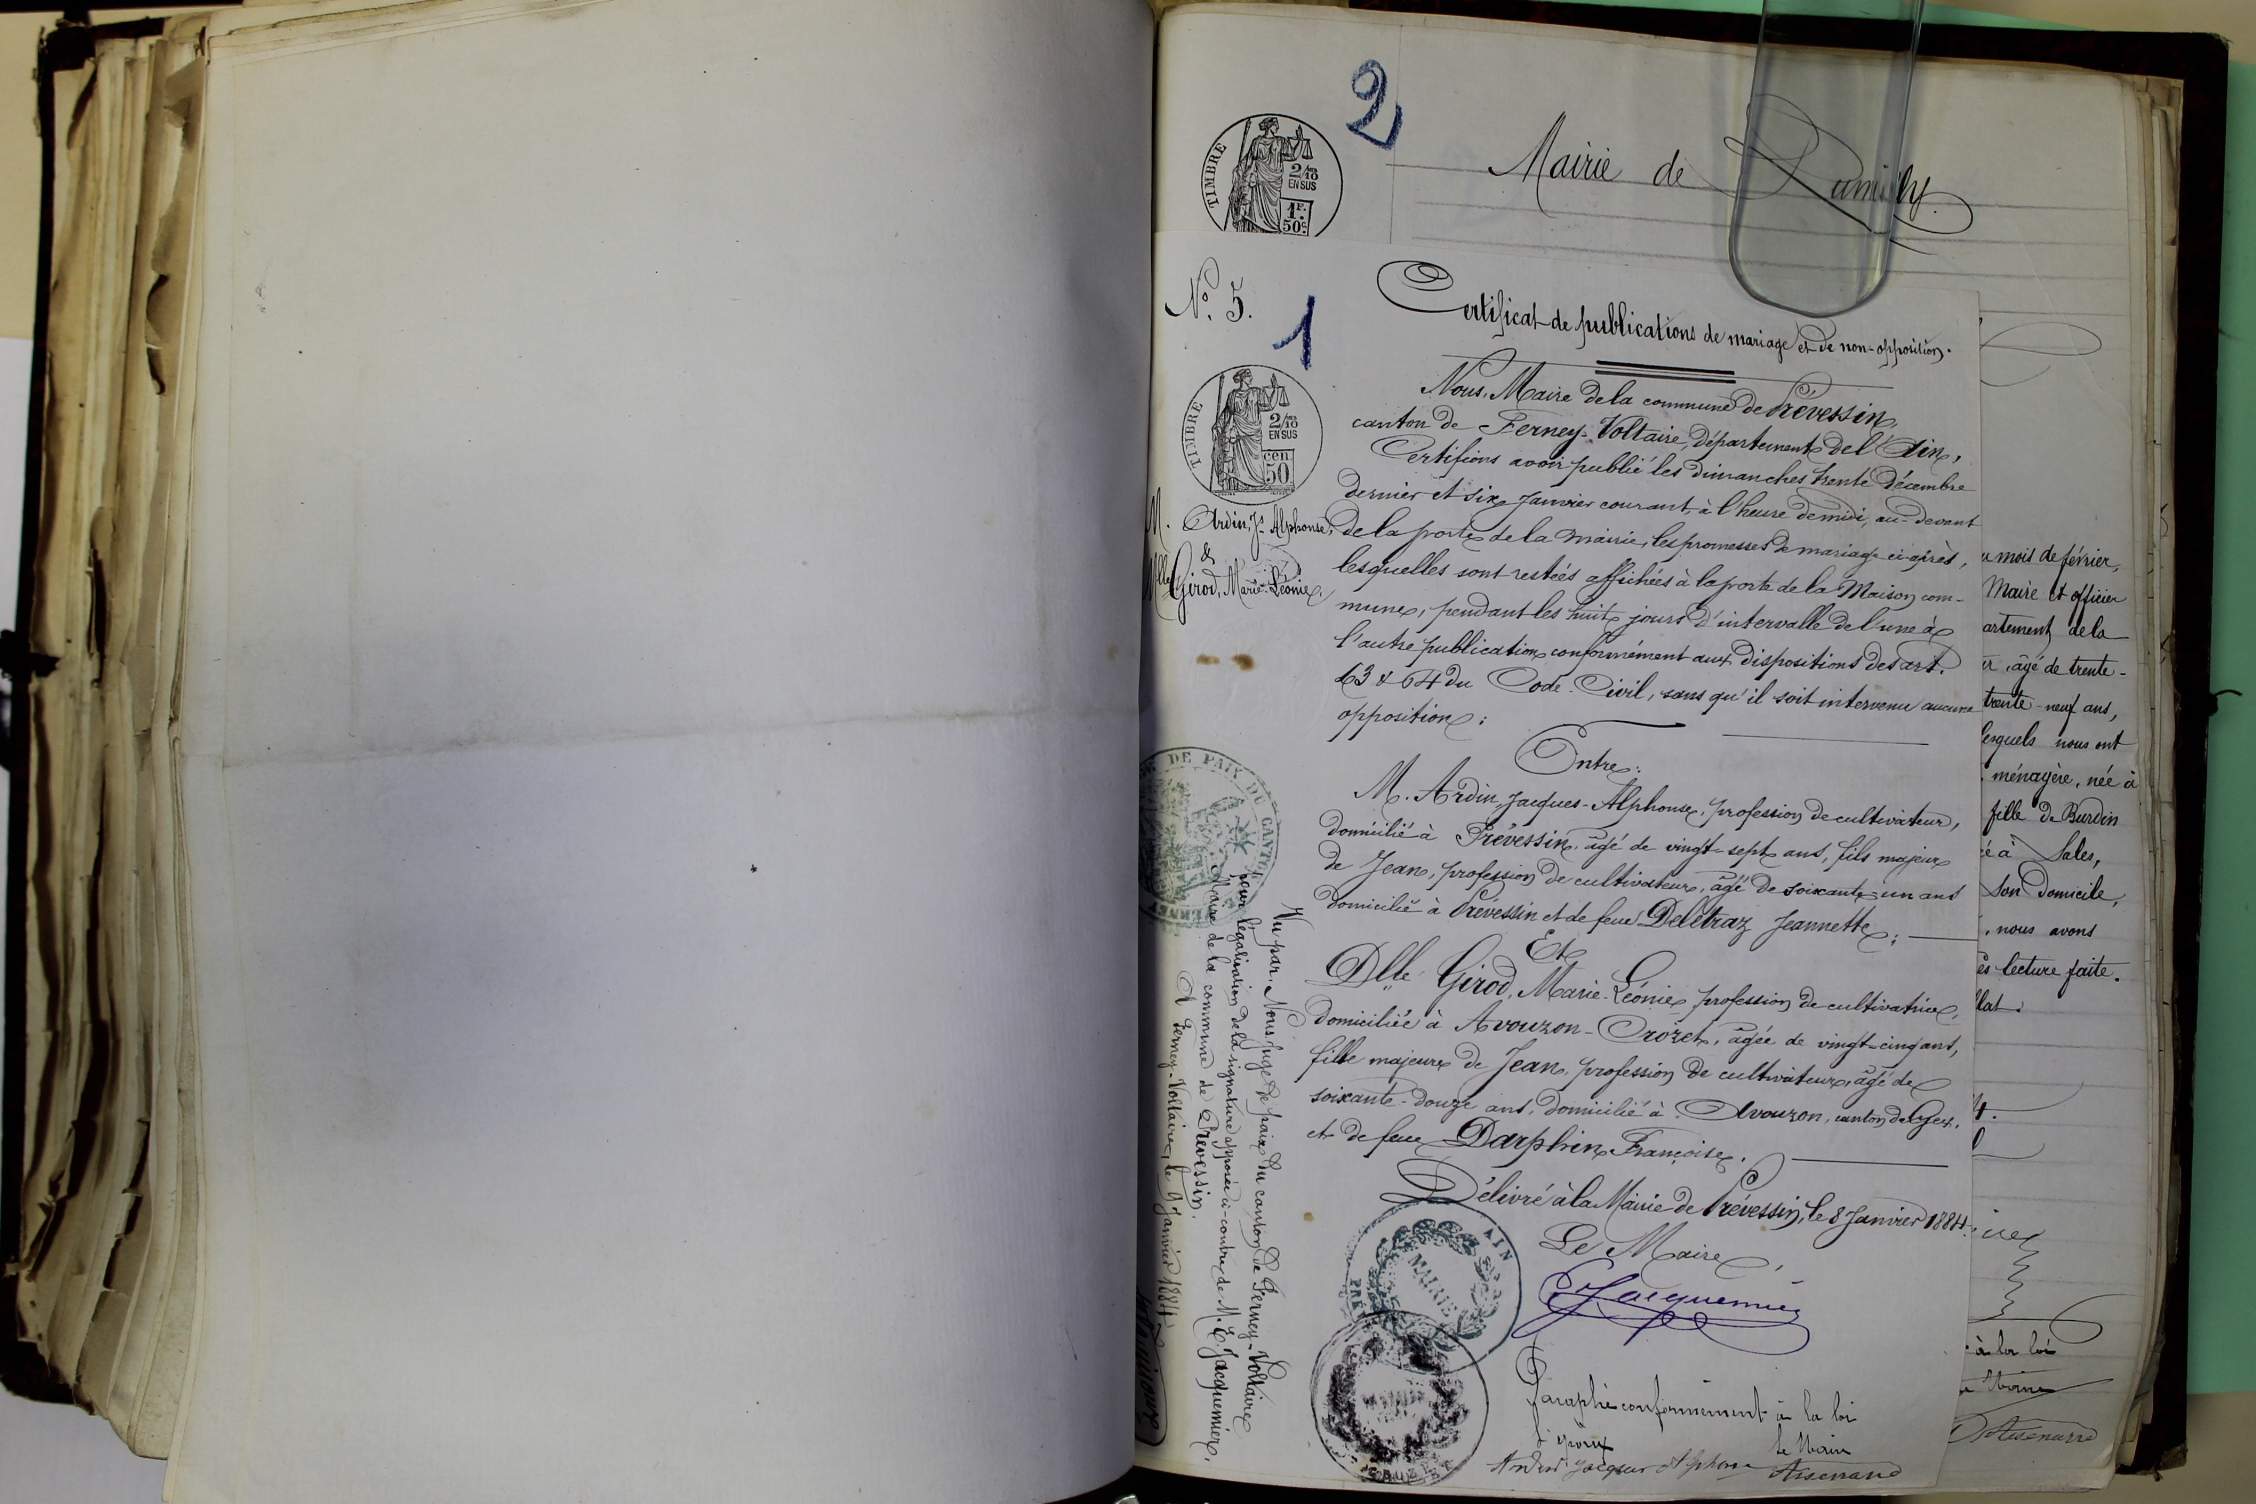 2
TIMBRE
2/10
EN SUS
1F.
50c.
Mairie de Rumilly.
No. 5.
1
Certificat de publications de mariage et de non-opposition.
TIMBRE
2/10
EN SUS
cen
50
M. Ardin, Js Alphonse,
&
Mlle Girod, Marie-Léonie,
Nous, Maire de la commune de Prévessin,
canton de Ferney-Voltaire, département de l'Ain,
Certifions avoir publié les dimanches trente décembre
dernier et six janvier courant, à l'heure de midi, au-devant
de la porte de la mairie, les promesses de mariage ci-après,
lesquelles sont restées affichées à la porte de la Maison com-
mune, pendant les huit jours d'intervalle de l'une à
l'autre publication conformément aux dispositions des art.
63 & 64 du Code-Civil, sans qu'il soit intervenu aucune
opposition :
Entre :
M. Ardin Jacques-Alphonse, profession de cultivateur,
domicilié à Prévessin, âgé de vingt-sept ans, fils majeur
de Jean, profession de cultivateur, âgé de soixante-un ans
domicilié à Prévessin et de feue Deletraz Jeannette ;
Et
Dlle Girod, Marie-Léonie, profession de cultivatrice,
domiciliée à Avouzon-Crozet, âgée de vingt-cinq ans,
fille majeure de Jean, profession de cultivateur, âgé de
soixante-douze ans, domicilié à Avouzon, canton de Gex,
et de feue Darphin Françoise.
Délivré à la Mairie de Prévessin, le 8 Janvier 1884.
Le Maire,
E. Jacquemier
AIN
MAIRIE
Paraphé conformément à la loi
L'époux
Le Maire
Ardin Jacques Alphonse
DE PAIX DU CANTON
FERNEY
Vu par Nous Juge de paix du canton de Ferney-Voltaire
pour légalisation de la signature apposée ci-contre de M. E. Jacquemier,
Maire de la commune de Prévessin.
A Ferney-Voltaire, le 9 Janvier 1884
u mois de février,
Maire et officier
artement de la
er, âgé de trente-
trente-neuf ans,
lesquels nous ont
ménagère, née à
fille de Burdin
ée à Sales,
son domicile,
, nous avons
ès lecture faite.
llat.
à la loi